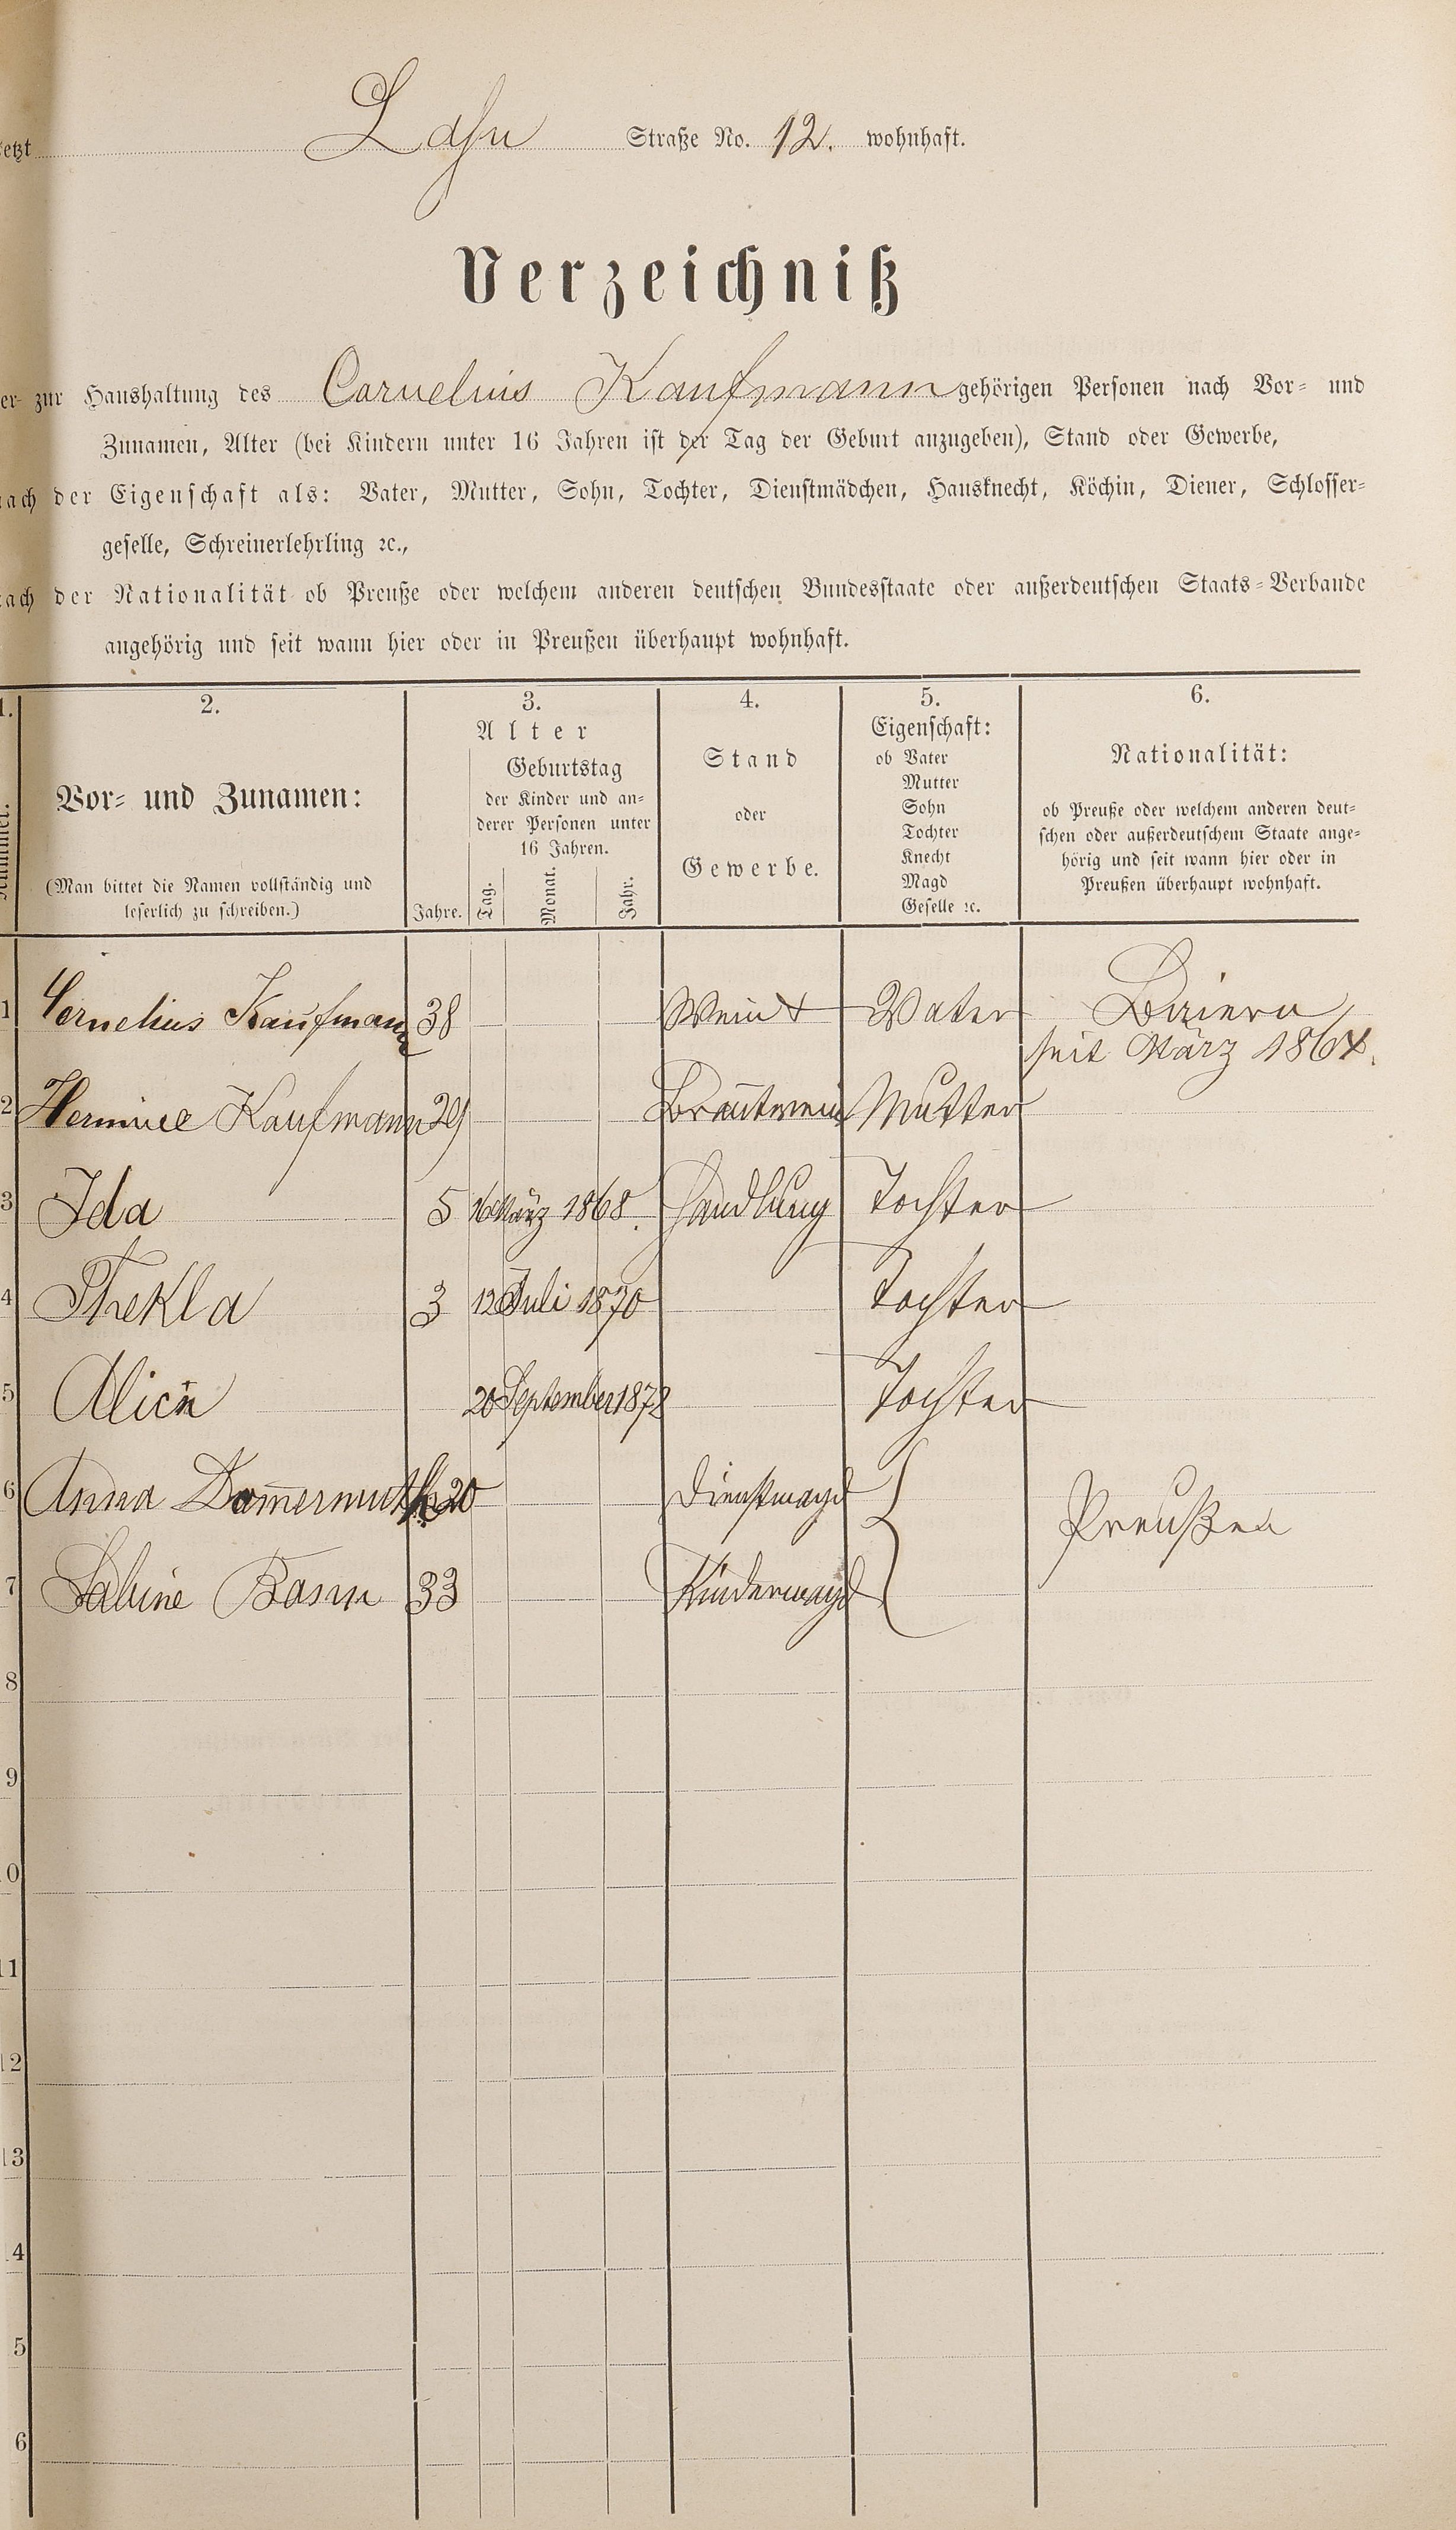 etzt Lahn Straße No. 12. wohnhaft.
Verzeichniß
er zur Haushaltung des Cornelius Kaufmann gehörigen Personen nach Vor- und
Zunamen, Alter (bei Kindern unter 16 Jahren ist der Tag der Geburt anzugeben), Stand oder Gewerbe,
nach der Eigenschaft als: Vater, Mutter, Sohn, Tochter, Dienstmädchen, Hausknecht, Köchin, Diener, Schlosser-
geselle, Schreinerlehrling ꝛc.,
nach der Nationalität ob Preuße oder welchem anderen deutschen Bundesstaate oder außerdeutschen Staats-Verbande
angehörig und seit wann hier oder in Preußen überhaupt wohnhaft.
1.
Nummer.
2.
Vor- und Zunamen:
(Man bittet die Namen vollständig und
leserlich zu schreiben.)
3.
Alter
Geburtstag
der Kinder und an-
derer Personen unter
16 Jahren.
Jahre. Tag. Monat. Jahr.
4.
Stand
oder
Gewerbe.
5.
Eigenschaft:
ob Vater
Mutter
Sohn
Tochter
Knecht
Magd
Geselle ꝛc.
6.
Nationalität:
ob Preuße oder welchem anderen deut-
schen oder außerdeutschem Staate ange-
hörig und seit wann hier oder in
Preußen überhaupt wohnhaft.
1 Cornelius Kaufmann 38 Wein & Vater Baiern
seit März 1864.
2 Hermine Kaufmann 29 Brantwein Mutter
3 Ida 5 16 März 1868. Handlung Tochter
4 Thekla 3 12 Juli 1870 Tochter
5 Alice 20 September 1872 Tochter
6 Anna Damermuth 20 Dienstmagd
Preußen
7 Sabine 33 Kindermagd
8
9
0
11
12
13
4
5
6